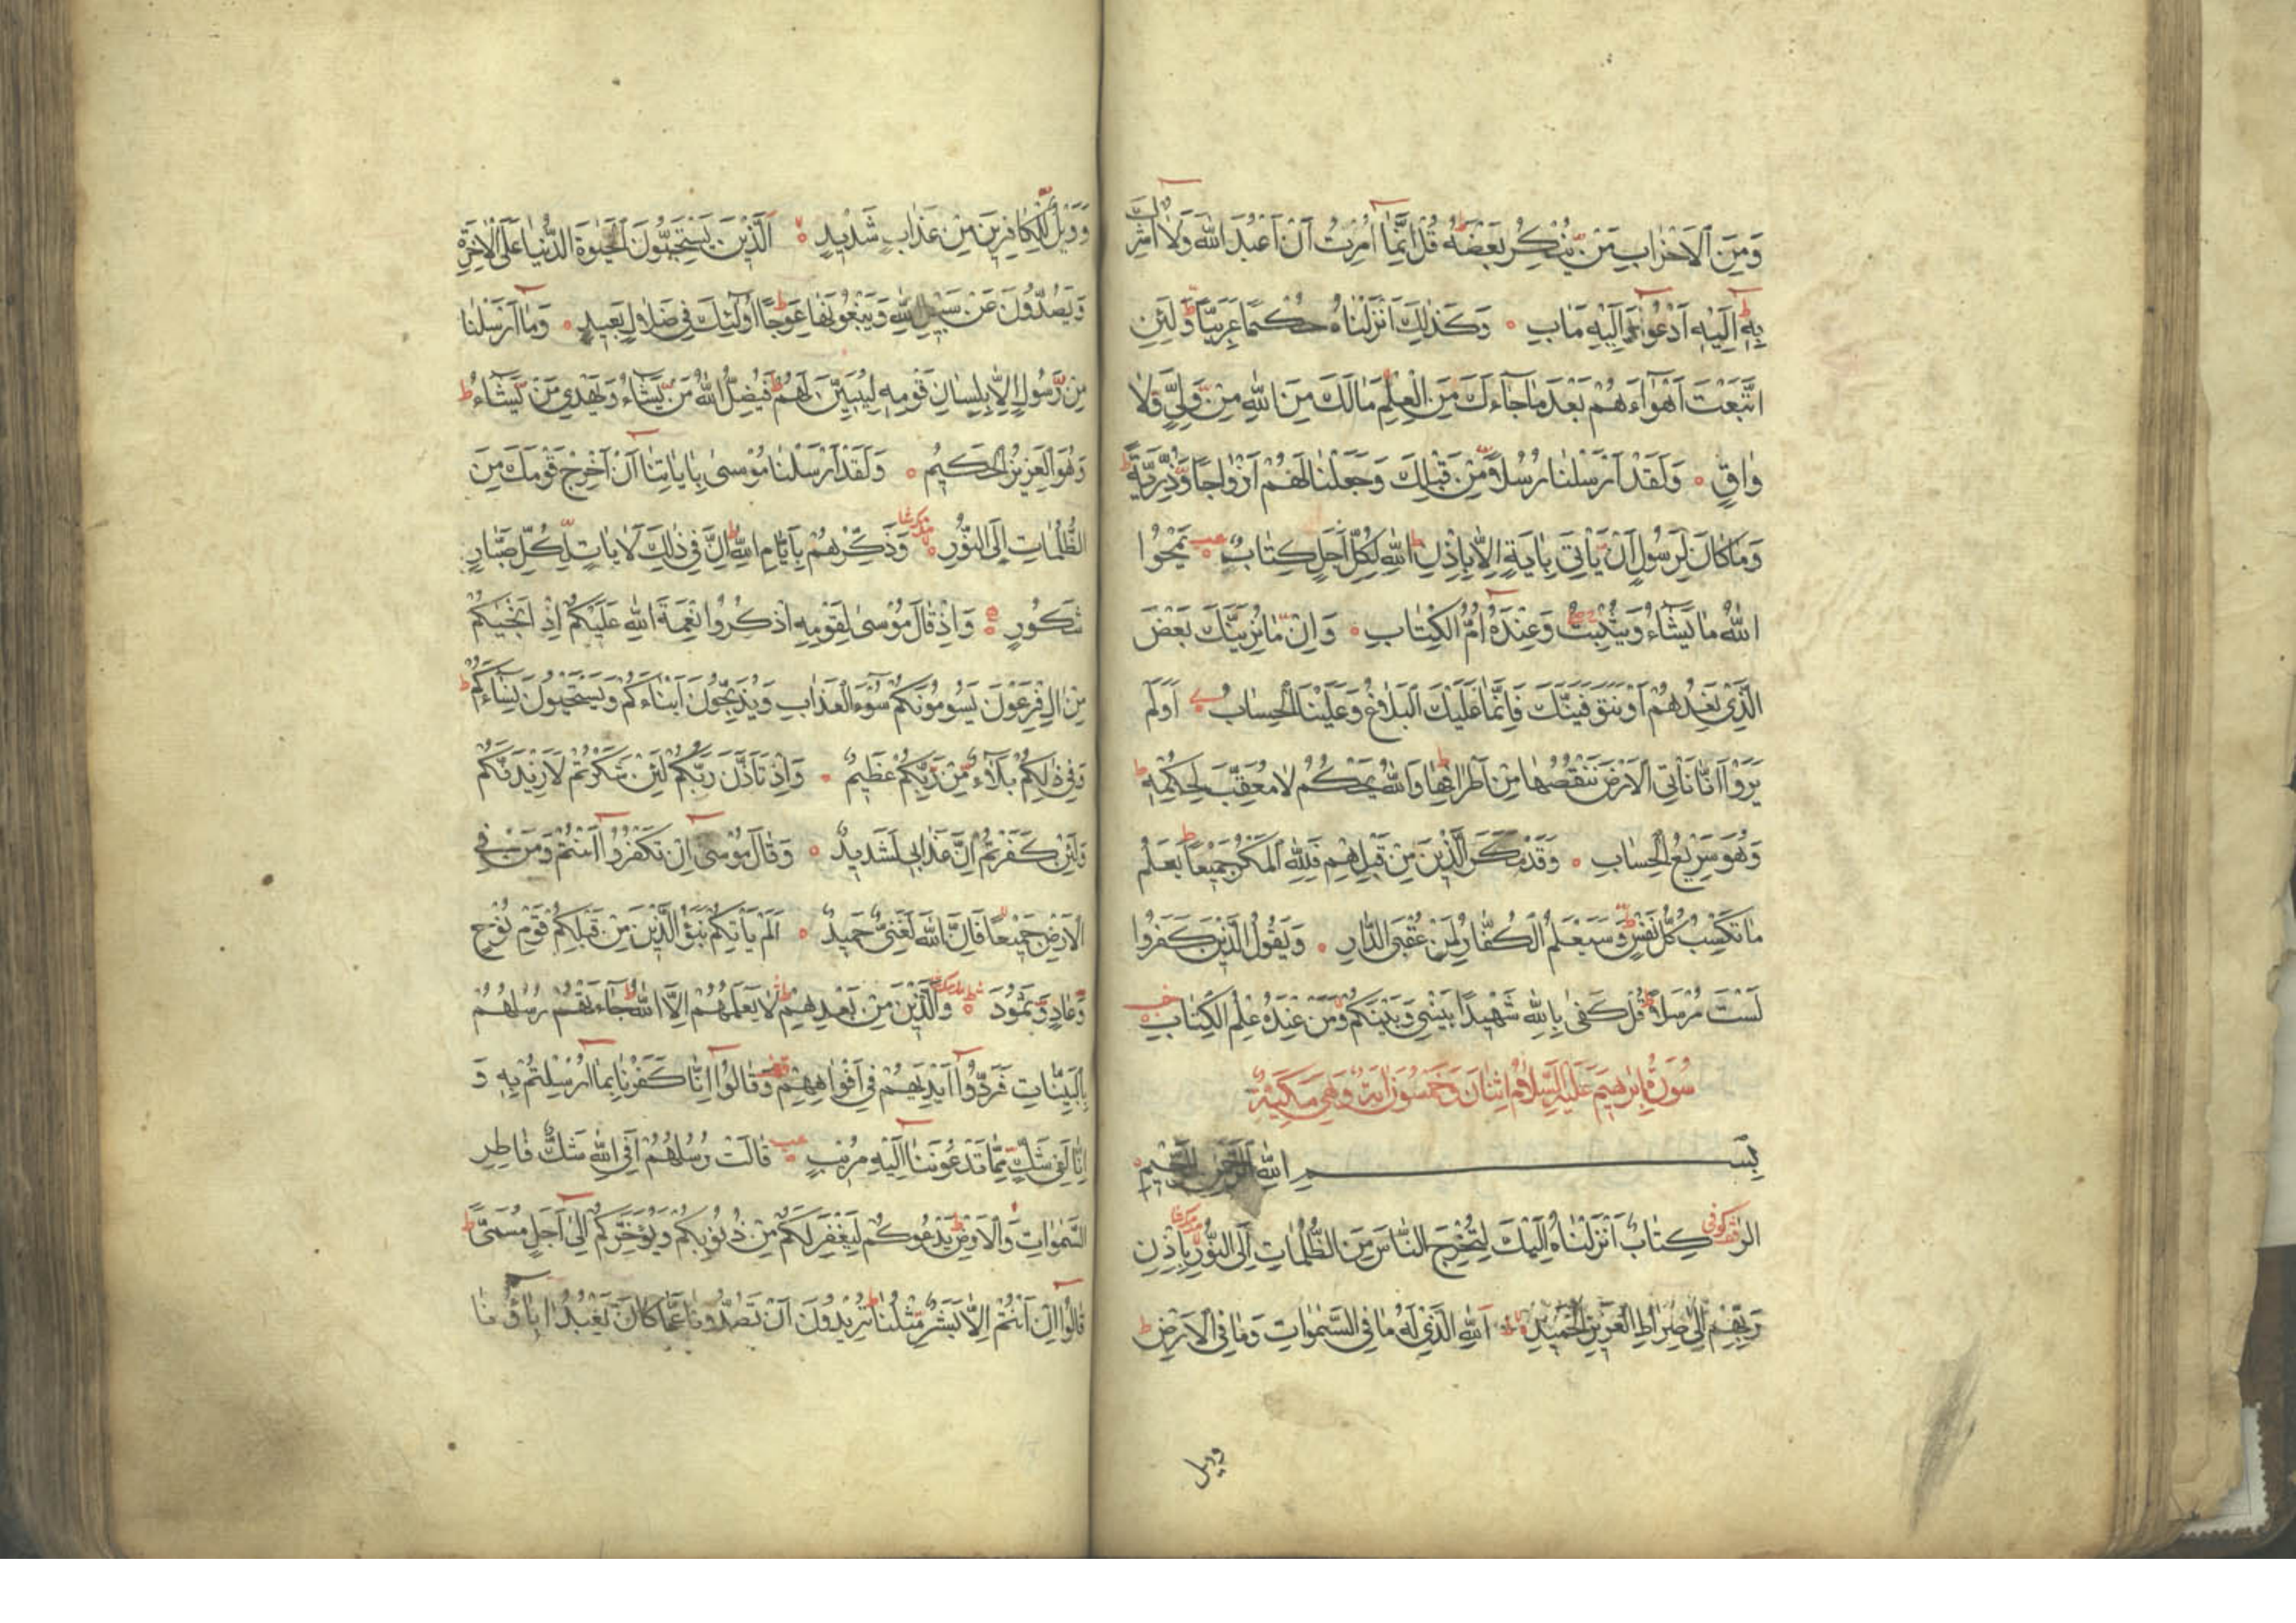 وَمِنَ الْاَحْزَابِ مَنْ يُنْكِرُ بَعْضَهُ قُلْ اِنَّمَا اُمِرْتُ اَنْ اَعْبُدَ اللّٰهَ وَلَا اُشْرِكَ
بِهِ اِلَيْهِ اَدْعُوا وَاِلَيْهِ مَاٰبِ وَكَذٰلِكَ اَنْزَلْنَاهُ حُكْمًا عَرَبِيًّا وَلَئِنِ
اتَّبَعْتَ اَهْوَاءَهُمْ بَعْدَ مَا جَاءَكَ مِنَ الْعِلْمِ مَا لَكَ مِنَ اللّٰهِ مِنْ وَلِيٍّ وَلَا
وَاقٍ وَلَقَدْ اَرْسَلْنَا رُسُلًا مِنْ قَبْلِكَ وَجَعَلْنَا لَهُمْ اَزْوَاجًا وَذُرِّيَّةً ط
وَمَا كَانَ لِرَسُولٍ اَنْ يَأْتِيَ بِاٰيَةٍ اِلَّا بِاِذْنِ اللّٰهِ لِكُلِّ اَجَلٍ كِتَابٌ عب يَمْحُوا
اللّٰهُ مَا يَشَاءُ وَيُثْبِتُ وَعِنْدَهُ اُمُّ الْكِتَابِ وَاِنْ مَا نُرِيَنَّكَ بَعْضَ
الَّذِي نَعِدُهُمْ اَوْ نَتَوَفَّيَنَّكَ فَاِنَّمَا عَلَيْكَ الْبَلَاغُ وَعَلَيْنَا الْحِسَابُ اَوَلَمْ
يَرَوْا اَنَّا نَأْتِي الْاَرْضَ نَنْقُصُهَا مِنْ اَطْرَافِهَا وَاللّٰهُ يَحْكُمُ لَا مُعَقِّبَ لِحُكْمِهِ ط
وَهُوَ سَرِيعُ الْحِسَابِ وَقَدْ مَكَرَ الَّذِينَ مِنْ قَبْلِهِمْ فَلِلّٰهِ الْمَكْرُ جَمِيعًا ط يَعْلَمُ
مَا تَكْسِبُ كُلُّ نَفْسٍ وَسَيَعْلَمُ الْكُفَّارُ لِمَنْ عُقْبَى الدَّارِ وَيَقُولُ الَّذِينَ كَفَرُوا
لَسْتَ مُرْسَلًا قُلْ كَفٰى بِاللّٰهِ شَهِيدًا بَيْنِي وَبَيْنَكُمْ وَمَنْ عِنْدَهُ عِلْمُ الْكِتَابِ
سُورَةُ اِبْرٰهِيمَ عَلَيْهِ السَّلَامُ اثْنَانِ وَخَمْسُونَ اٰيَةً وَهِيَ مَكِّيَّةٌ
بِسْمِ اللّٰهِ الرَّحْمٰنِ الرَّحِيمِ
الٓرٰ كوفي كِتَابٌ اَنْزَلْنَاهُ اِلَيْكَ لِتُخْرِجَ النَّاسَ مِنَ الظُّلُمَاتِ اِلَى النُّورِ بِاِذْنِ
رَبِّهِمْ اِلٰى صِرَاطِ الْعَزِيزِ الْحَمِيدِ اَللّٰهِ الَّذِي لَهُ مَا فِي السَّمٰوَاتِ وَمَا فِي الْاَرْضِ ط
ويل
وَوَيْلٌ لِلْكَافِرِينَ مِنْ عَذَابٍ شَدِيدٍ اَلَّذِينَ يَسْتَحِبُّونَ الْحَيٰوةَ الدُّنْيَا عَلَى الْاٰخِرَةِ
وَيَصُدُّونَ عَنْ سَبِيلِ اللّٰهِ وَيَبْغُونَهَا عِوَجًا اُولٰئِكَ فِي ضَلَالٍ بَعِيدٍ وَمَا اَرْسَلْنَا
مِنْ رَسُولٍ اِلَّا بِلِسَانِ قَوْمِهِ لِيُبَيِّنَ لَهُمْ فَيُضِلُّ اللّٰهُ مَنْ يَشَاءُ وَيَهْدِي مَنْ يَشَاءُ ط
وَهُوَ الْعَزِيزُ الْحَكِيمُ وَلَقَدْ اَرْسَلْنَا مُوسٰى بِاٰيَاتِنَا اَنْ اَخْرِجْ قَوْمَكَ مِنَ
الظُّلُمَاتِ اِلَى النُّورِ وَذَكِّرْهُمْ بِاَيَّامِ اللّٰهِ اِنَّ فِي ذٰلِكَ لَاٰيَاتٍ لِكُلِّ صَبَّارٍ
شَكُورٍ وَاِذْ قَالَ مُوسٰى لِقَوْمِهِ اذْكُرُوا نِعْمَةَ اللّٰهِ عَلَيْكُمْ اِذْ اَنْجٰيكُمْ
مِنْ اٰلِ فِرْعَوْنَ يَسُومُونَكُمْ سُوءَ الْعَذَابِ وَيُذَبِّحُونَ اَبْنَاءَكُمْ وَيَسْتَحْيُونَ نِسَاءَكُمْ ط
وَفِي ذٰلِكُمْ بَلَاءٌ مِنْ رَبِّكُمْ عَظِيمٌ وَاِذْ تَاَذَّنَ رَبُّكُمْ لَئِنْ شَكَرْتُمْ لَاَزِيدَنَّكُمْ
وَلَئِنْ كَفَرْتُمْ اِنَّ عَذَابِي لَشَدِيدٌ وَقَالَ مُوسٰى اِنْ تَكْفُرُوا اَنْتُمْ وَمَنْ فِي
الْاَرْضِ جَمِيعًا فَاِنَّ اللّٰهَ لَغَنِيٌّ حَمِيدٌ اَلَمْ يَأْتِكُمْ نَبَؤُا الَّذِينَ مِنْ قَبْلِكُمْ قَوْمِ نُوحٍ
وَعَادٍ وَثَمُودَ وَالَّذِينَ مِنْ بَعْدِهِمْ لَا يَعْلَمُهُمْ اِلَّا اللّٰهُ جَاءَتْهُمْ رُسُلُهُمْ
بِالْبَيِّنَاتِ فَرَدُّوا اَيْدِيَهُمْ فِي اَفْوَاهِهِمْ وَقَالُوا اِنَّا كَفَرْنَا بِمَا اُرْسِلْتُمْ بِهِ وَ
اِنَّا لَفِي شَكٍّ مِمَّا تَدْعُونَنَا اِلَيْهِ مُرِيبٍ عب قَالَتْ رُسُلُهُمْ اَفِي اللّٰهِ شَكٌّ فَاطِرِ
السَّمٰوَاتِ وَالْاَرْضِ يَدْعُوكُمْ لِيَغْفِرَ لَكُمْ مِنْ ذُنُوبِكُمْ وَيُؤَخِّرَكُمْ اِلٰى اَجَلٍ مُسَمًّى ط
قَالُوا اِنْ اَنْتُمْ اِلَّا بَشَرٌ مِثْلُنَا تُرِيدُونَ اَنْ تَصُدُّونَا عَمَّا كَانَ يَعْبُدُ اٰبَاؤُنَا